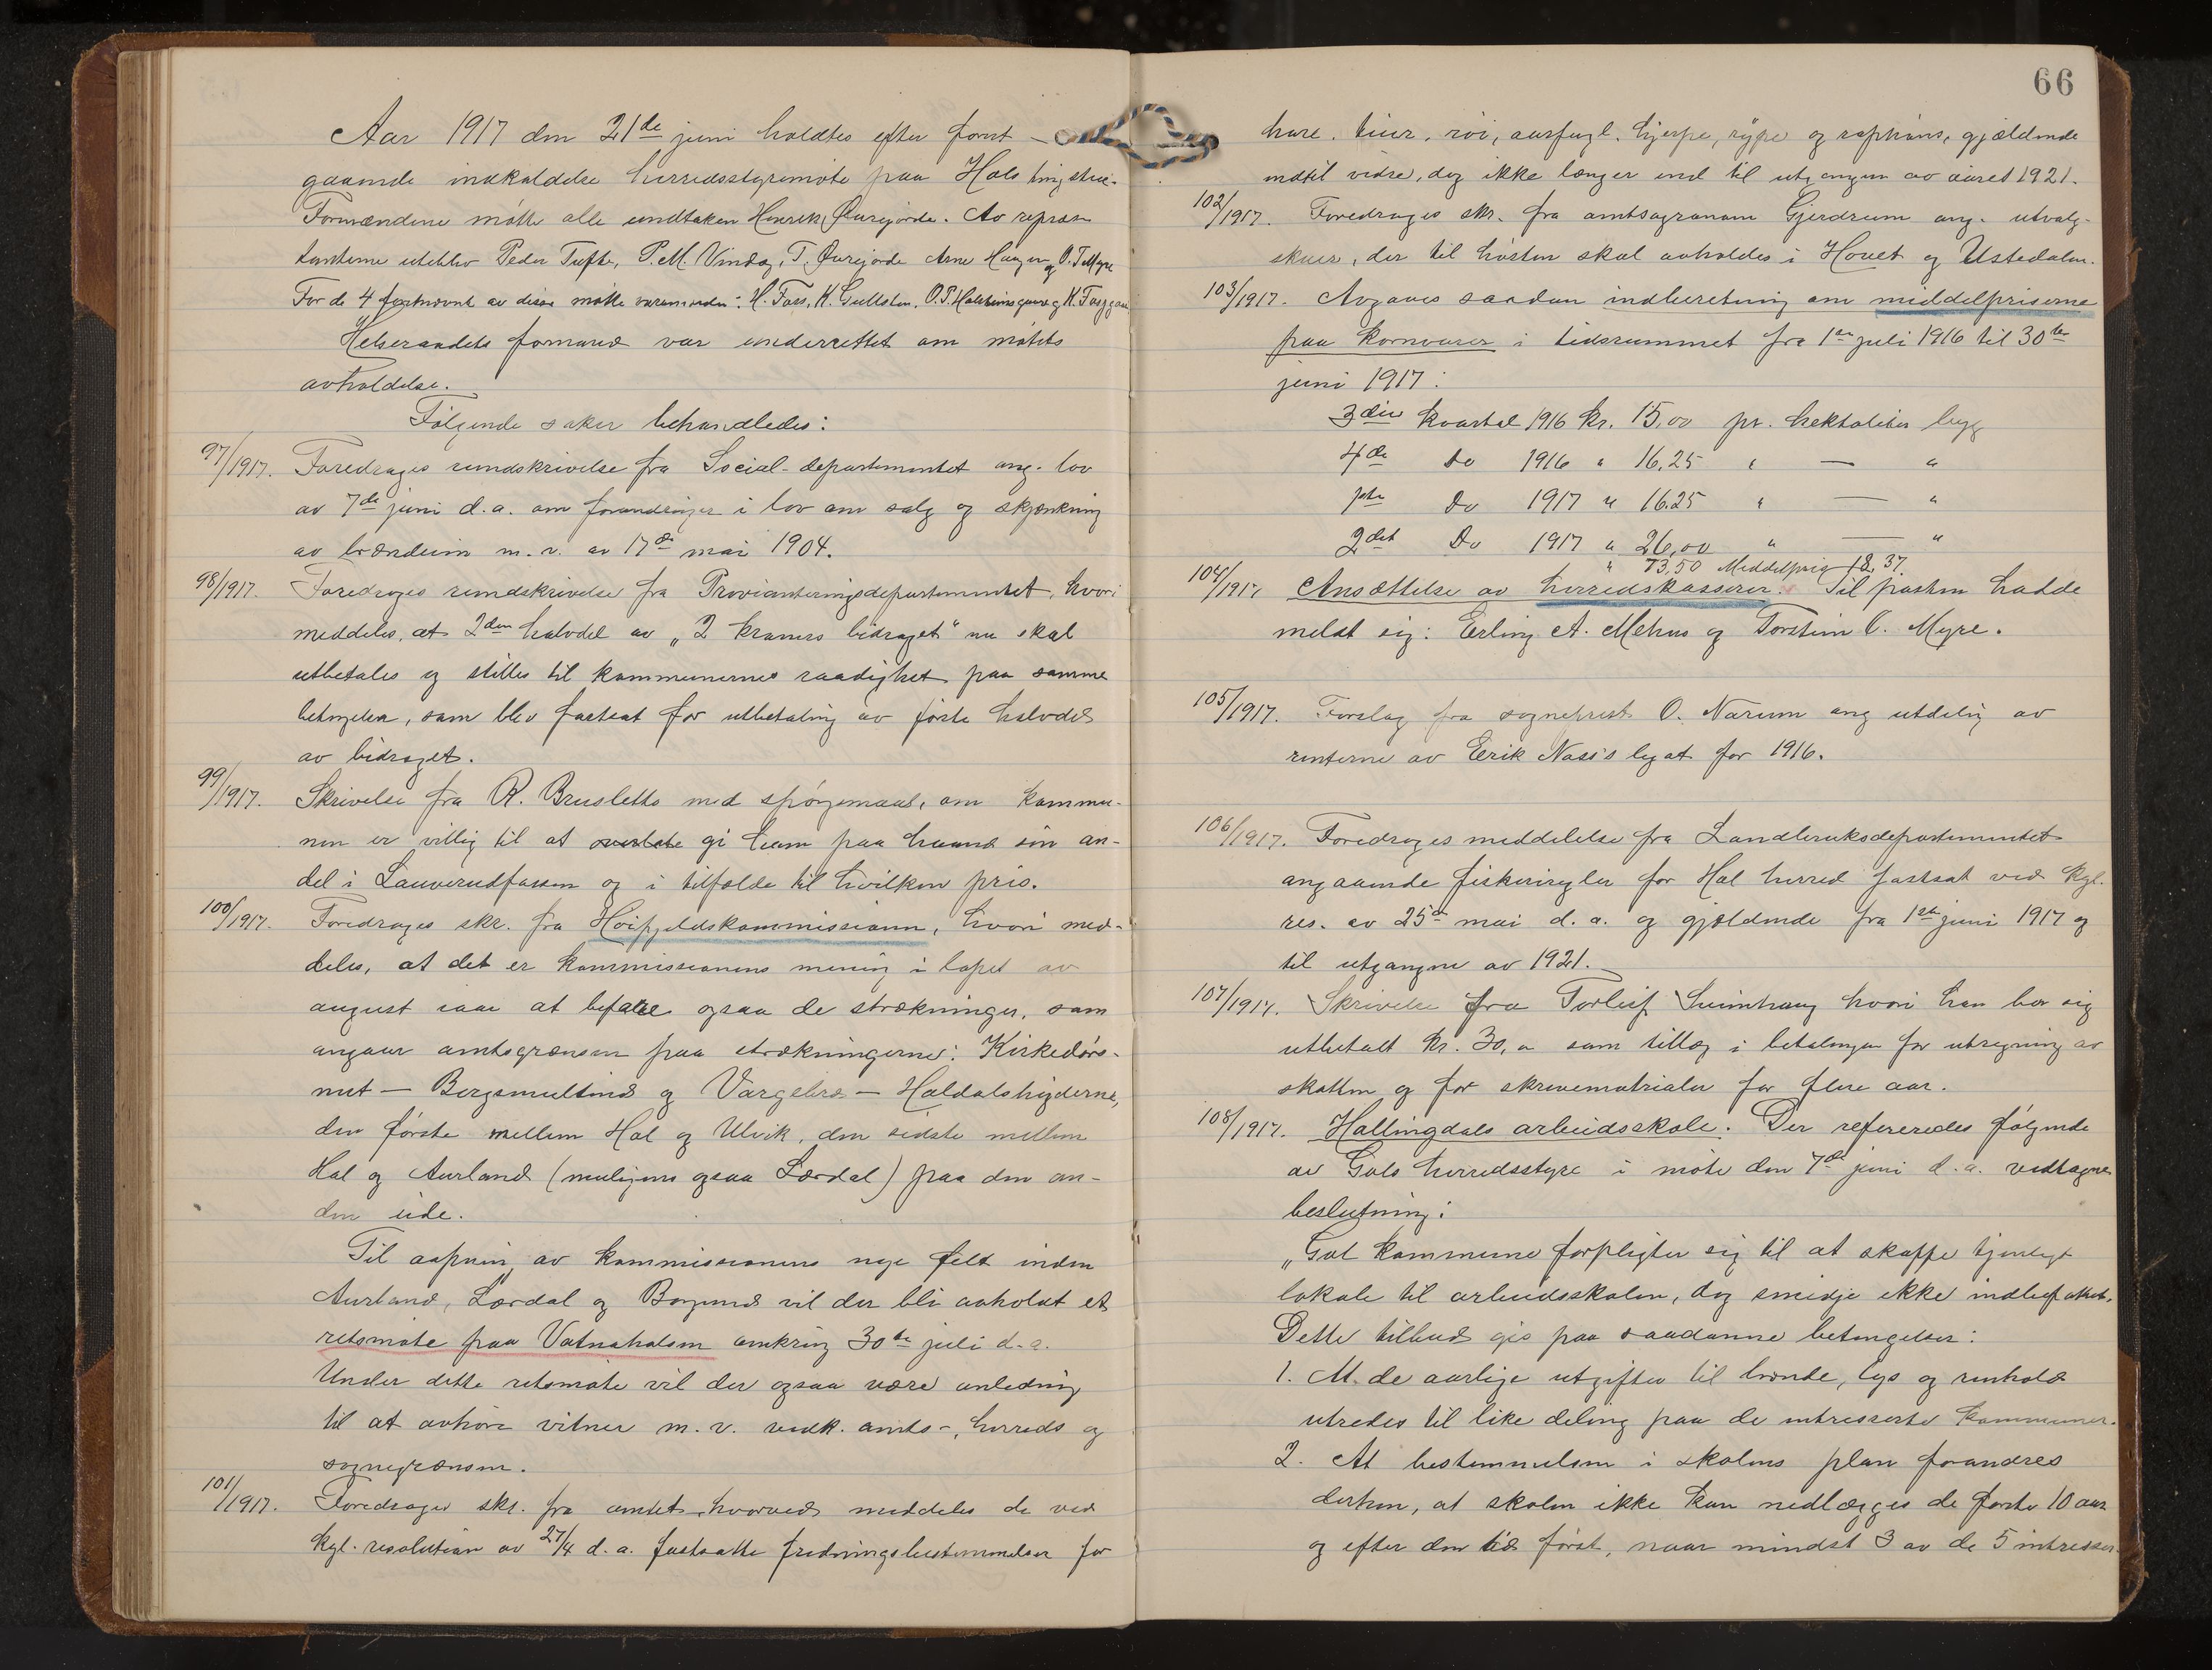 Aar 1917 den 21de juni holdtes efter forut-
gaaende indkaldelse herredsstyremøte paa Hols tingstue.
Formændene møtte alle undtaken Henrik Øvregjorde. Av repræsen
tanterne uteblev Peder Tufte, P. M. Vindeg, T. Øvregjorde Arne Haugen og O. T. Myre
For de 4 førstnævnte av disse møtte varamænd: H. Foss, K. Gullsten, O. P. Holsteinsgaard og K.
Helseraadets formand var underrettet om møtets
avholdelse.
Følgende saker behandledes:
97/1917. Foredrages rundskrivelse fra Social-departementet ang. lov
av 7de juni d.a. om forandringer i lov om salg og skjænkning
av brændevin m.v. av 17de mai 1904.
98/1917. Foredrages rundskrivelse fra Provianteringsdepartementet, hvori
meddeles, at 2den halvdel av „2 kroners bidraget" nu skal
utbetales og stilles til kommunernes raadighet paa samme
betingelser, som blev fastsat for utbetaling av første halvdel
av bidraget.
99/1917. Skrivelse fra R. Brusletto med spørgsmaal, om kommu-
nen er villig til at overlate gi ham paa haand sin an-
del i Lauverudfossen og i tilfælde til hvilken pris.
100/1917. Foredrages skr. fra Høifjeldskommissionen, hvori med-
deles, at det er kommissionens mening i løpet av
august iaar at befare ogsaa de strækninger, som
angaar amtsgrænsen paa strækningerne: Kirkedørs-
nut — Bergsmultind og Vargebræ — Holdalshøgderne,
den første mellem Hol og Ulvik, den sidste mellem
Hol og Aurland (muligens ogsaa Lærdal) paa den an-
den side.
Til aapning av kommissionens nye felt inden
Aurland, Lærdal og Borgund vil der bli avholdt et
retsmøte paa Vatnahalsen omkring 30te juli d.a.
Under dette retsmøte vil der ogsaa være anledning
til at avhøre vitner m.v. vedk. amts-, herreds og
sognegrænsen.
101/1917. Foredrages skr. fra amtet, hvorved meddeles de ved
kgl. resolution av 27/4 d.a. fastsatte fredningsbestemmelser for
66
hare, tiur, røi, aarfugl, hjerpe, rype og raphøns, gjældende
indtil videre, dog ikke længer end til utgangen av aaret 1921.
102/1917. Foredrages skr. fra amtsagronom Gjerdrum ang. utvalg-
skuer, der til høsten skal avholdes i Hovet og Ustedalen.
103/1917. Avgaves saadan indberetning om middelpriserne
paa kornvarer i tidsrummet fra 1ste juli 1916 til 30te
juni 1917:
3die kvartal 1916 kr. 15,00 pr. hektoliter bygg
4de do 1916 " 16,25 " — "
1ste do 1917 " 16.25 " — "
2det do 1917 " 26,00 " — "
" 73,50 Middelpris 18,37.
104/1917. Ansættelse av herredskasserer. Til posten hadde
meldt sig: Erling A. Mehus og Torstein O. Myre.
105/1917. Forslag fra sogneprest O. Nærum ang utdeling av
renterne av Erik Næss's legat for 1916.
106/1917. Foredrages meddelelse fra Landbruksdepartementet
angaaende fiskeriregler for Hol herred fastsat ved kgl.
res. av 25de mai d.a. og gjældende fra 1ste juni 1917 og
til utgangen av 1921.
107/1917. Skrivelse fra Torleif Sveinhaug hvori han ber sig
utbetalt kr. 30,- som tillæg i betalingen for utregning av
skatten og for skrivematrialer for flere aar.
108/1917. Hallingdals arbeidsskole. Der refereredes følgende
av Gols herredsstyre i møte den 7de juni d.a. vedtagne
beslutning:
„Gol kommune forpligter sig til at skaffe tjenligt
lokale til arbeidsskolen, dog smidje ikke indbefattet.
Dette tilbud gis paa saadanne betingelser:
1. At de aarlige utgifter til brænde, lys og renhold
utredes til like deling paa de interesserte kommuner.
2. At bestemmelsen i skolens plan forandres
derhen, at skolen ikke kan nedlægges de første 10 aar
og efter den tid først, naar mindst 3 av de 5 interesser-